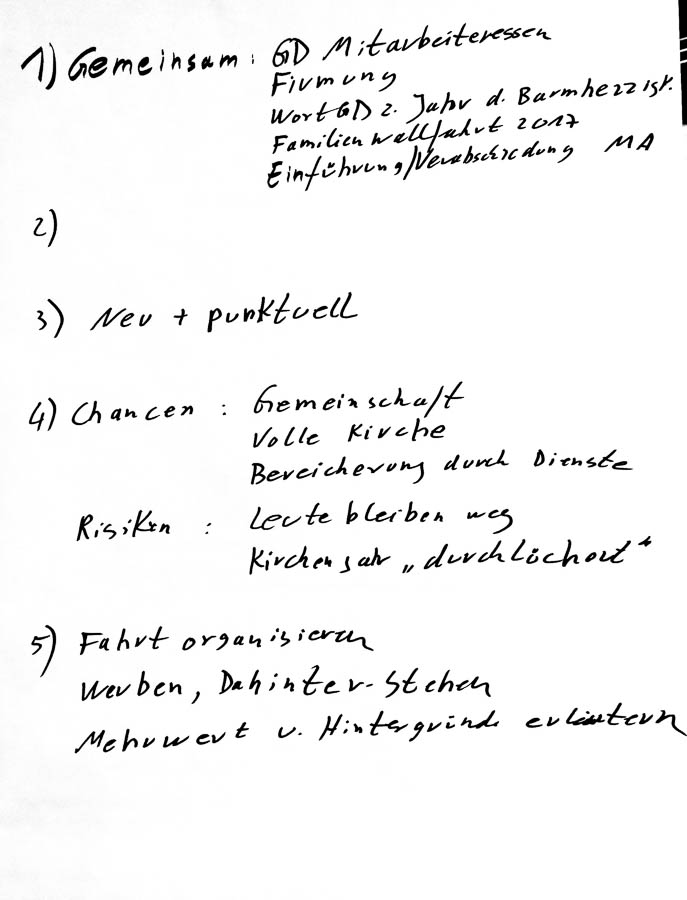 1) Gemeinsam: GD Mitarbeiteressen
Firmung
WortGD z. Jahr d. Barmherzigk.
Familienwallfahrt 2017
Einführung/Verabschiedung MA
2)
3) Neu + punktuell
4) Chancen : Gemeinschaft
Volle Kirche
Bereicherung durch Dienste
Risiken : Leute bleiben weg
Kirchenjahr „durchlöchert“
5) Fahrt organisieren
Werben, Dahinter-Stehen
Mehrwert u. Hintergründe erläutern